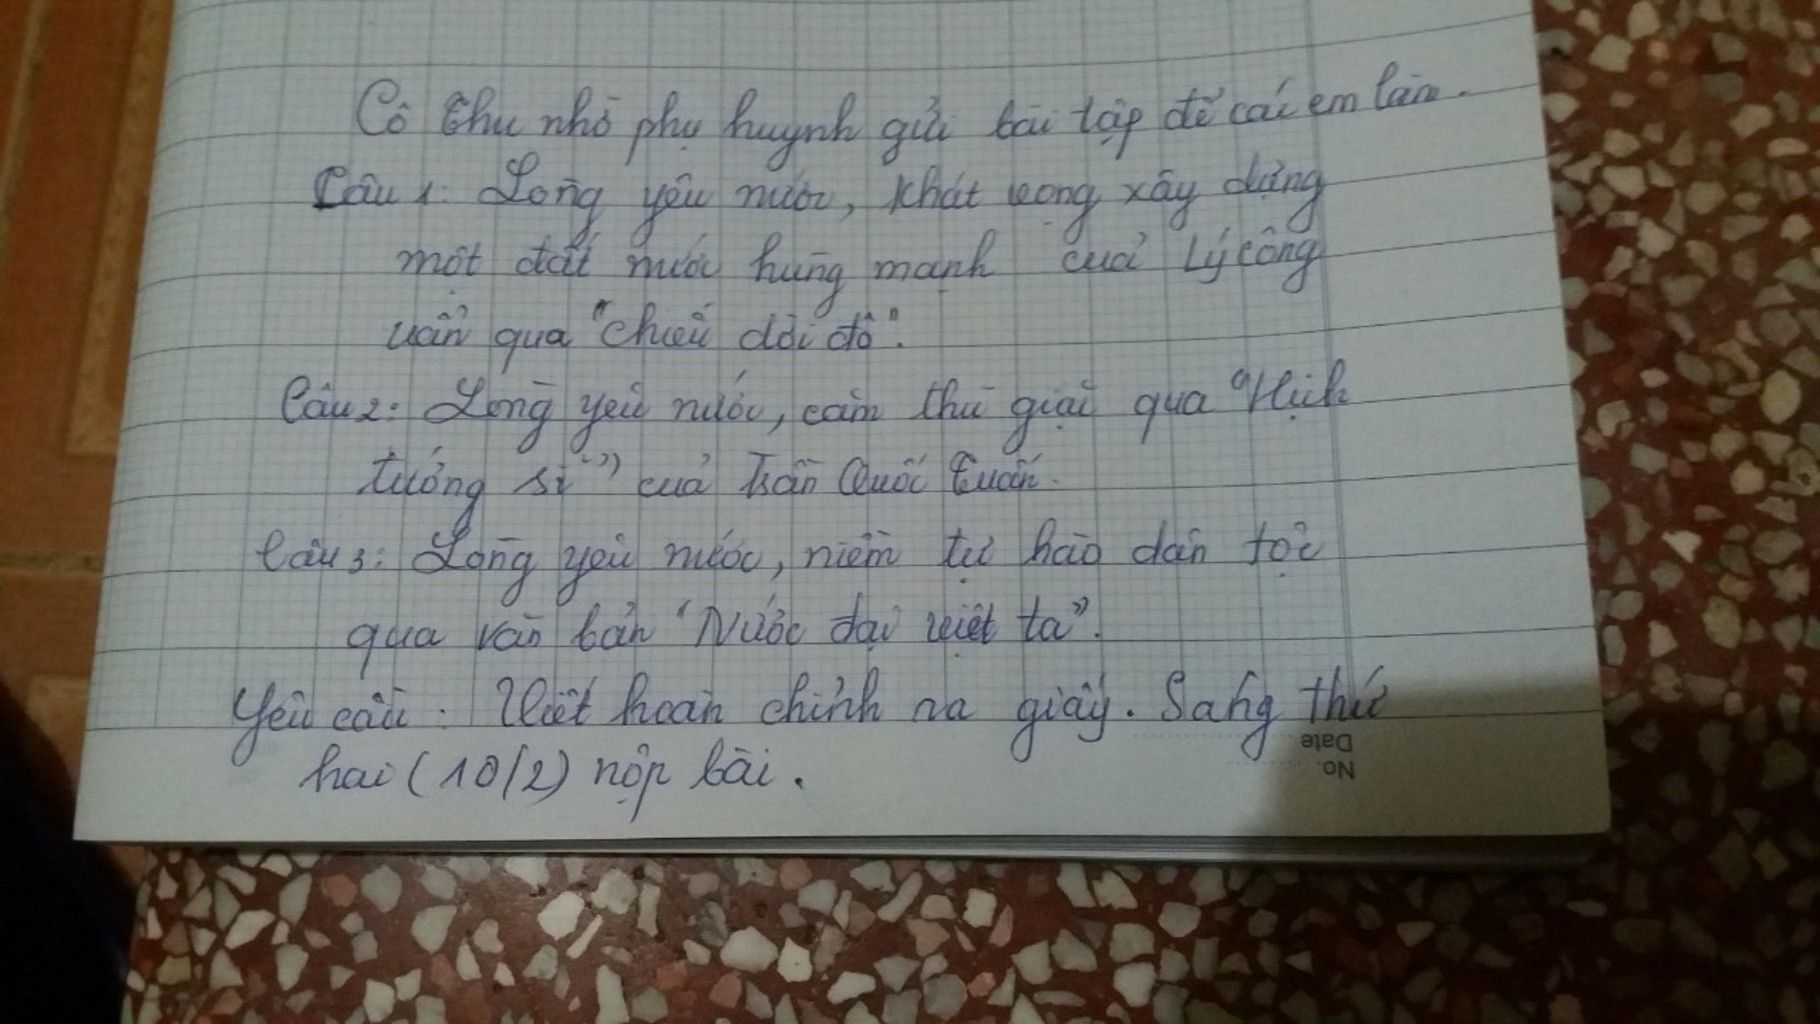 Cô Thu nhờ phụ huynh gửi bài tập để các em làm.
Câu 1: Lòng yêu nước, khát vọng xây dựng
một đất nước hùng mạnh của Lý Công
Uẩn qua "Chiếu dời đô".
Câu 2: Lòng yêu nước, căm thù giặc qua "Hịch
tướng sĩ" của Trần Quốc Tuấn.
Câu 3: Lòng yêu nước, niềm tự hào dân tộc
qua văn bản "Nước đại việt ta".
Yêu cầu: Viết hoàn chỉnh ra giấy. Sáng thứ
hai (10/2) nộp bài.
No.
Date